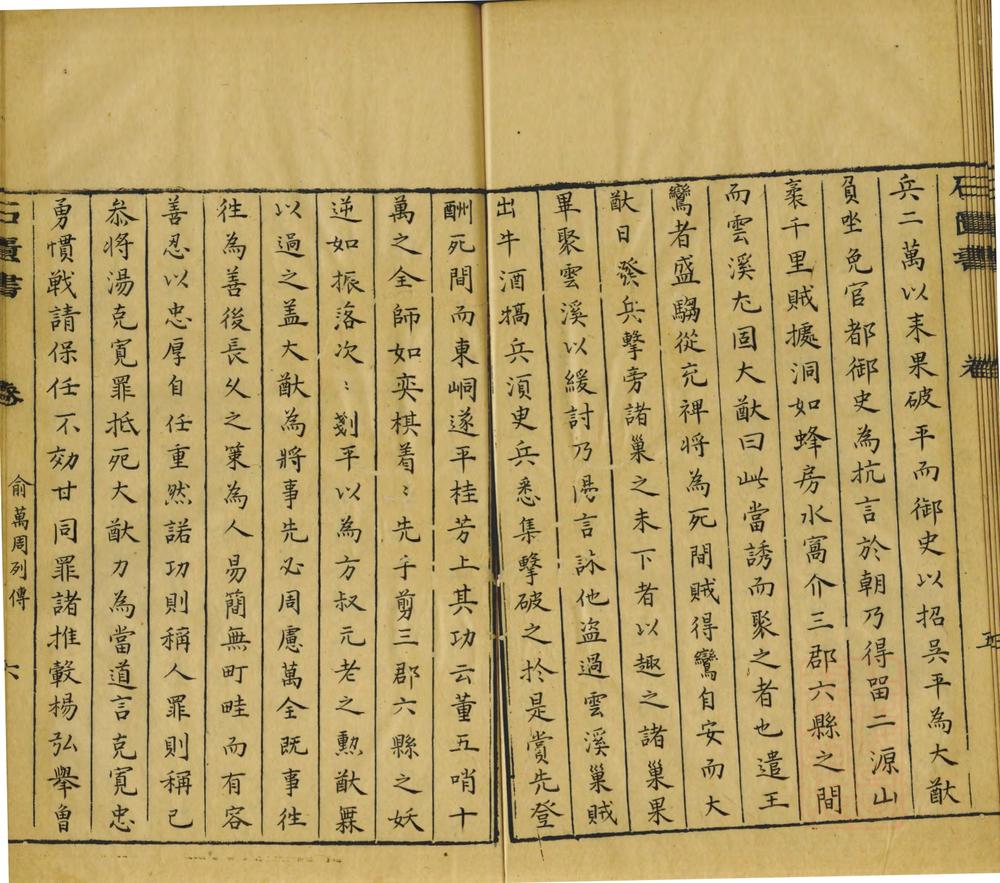 石匱書
卷
兵二萬以来果破平而御史以招吴平為大猷
負坐免官都御史為抗言於朝乃得畱二源山
袤千里賊㩀洞如蜂房水窩介三郡六縣之間
而雲溪尤固大猷曰此當誘而聚之者也遣王
鸞者盛騶從充裨將為死間賊得鸞自安而大
猷日發兵擊旁諸巢之未下者以趣之諸巢果
畢聚雲溪以緩討乃陽言詠他盜過雲溪巢賊
出牛酒犒兵湏史兵悉集擊破之於是賞先登
酬死間而東峒遂平桂芳上其功云董五哨十
萬之全師如奕棋着〻先乎剪三郡六縣之妖
逆如振落次〻剗平以為方叔元老之勲猷霖
以過之盖大猷為將事先必周慮萬全既事徃
徃為善後長久之策為人易簡無町畦而有容
善忍以忠厚自任重然諾功則稱人罪則稱已
叅將湯克寛罪抵死大猷力為當道言克寛忠
勇慣戰請保任不効甘同罪諸推轂楊弘舉魯
石匱書
卷
俞萬周列傳
六